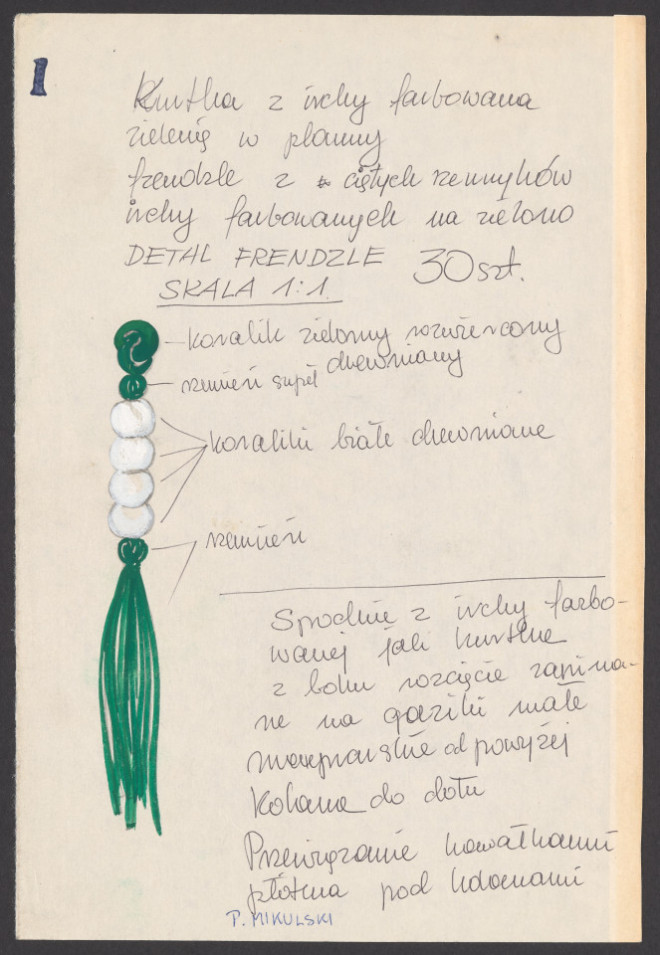 I
Kurtka z irchy farbowana
zielenią w plamy
frendzle z ciętych rzemyków
irchy farbowanych na zielono
DETAL FRENDZLE 30 szt.
SKALA 1:1.
koralik zielony rozwiercony
drewniany
rzemień supeł
koraliki białe drewniane
rzemień
Spodnie z irchy farbo-
wanej jak kurtka
z boku rozcięcie zapina-
ne na guziki małe
marynarskie od powyżej
Kolana do dołu
Przewiązanie kawałkami
płótna pod kolanami
P. MIKULSKI